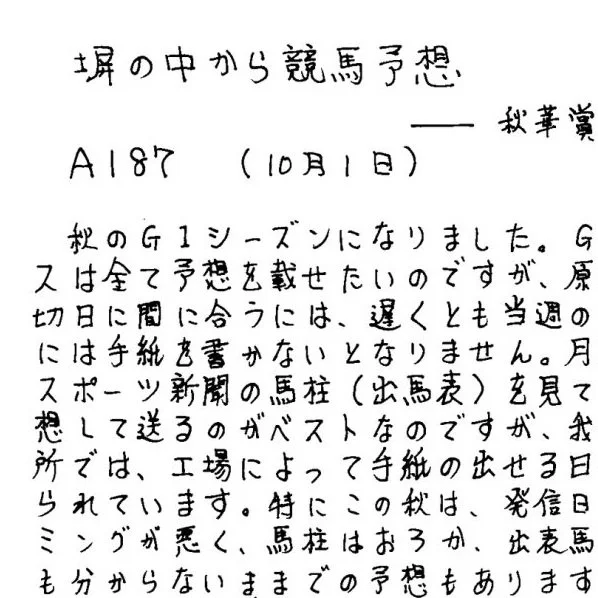 塀の中から競馬予想
―― 秋華賞
A187 (10月1日)
秋のG1シーズンになりました。G
スは全て予想を載せたいのですが、原
切日に間に合うには、遅くとも当週の
には手紙を書かないとなりません。月
スポーツ新聞の馬柱(出馬表)を見て
想して送るのがベストなのですが、我
所では、工場によって手紙の出せる日
られています。特にこの秋は、発信日
ミングが悪く、馬柱はおろか、出表馬
も分からないままでの予想もあります